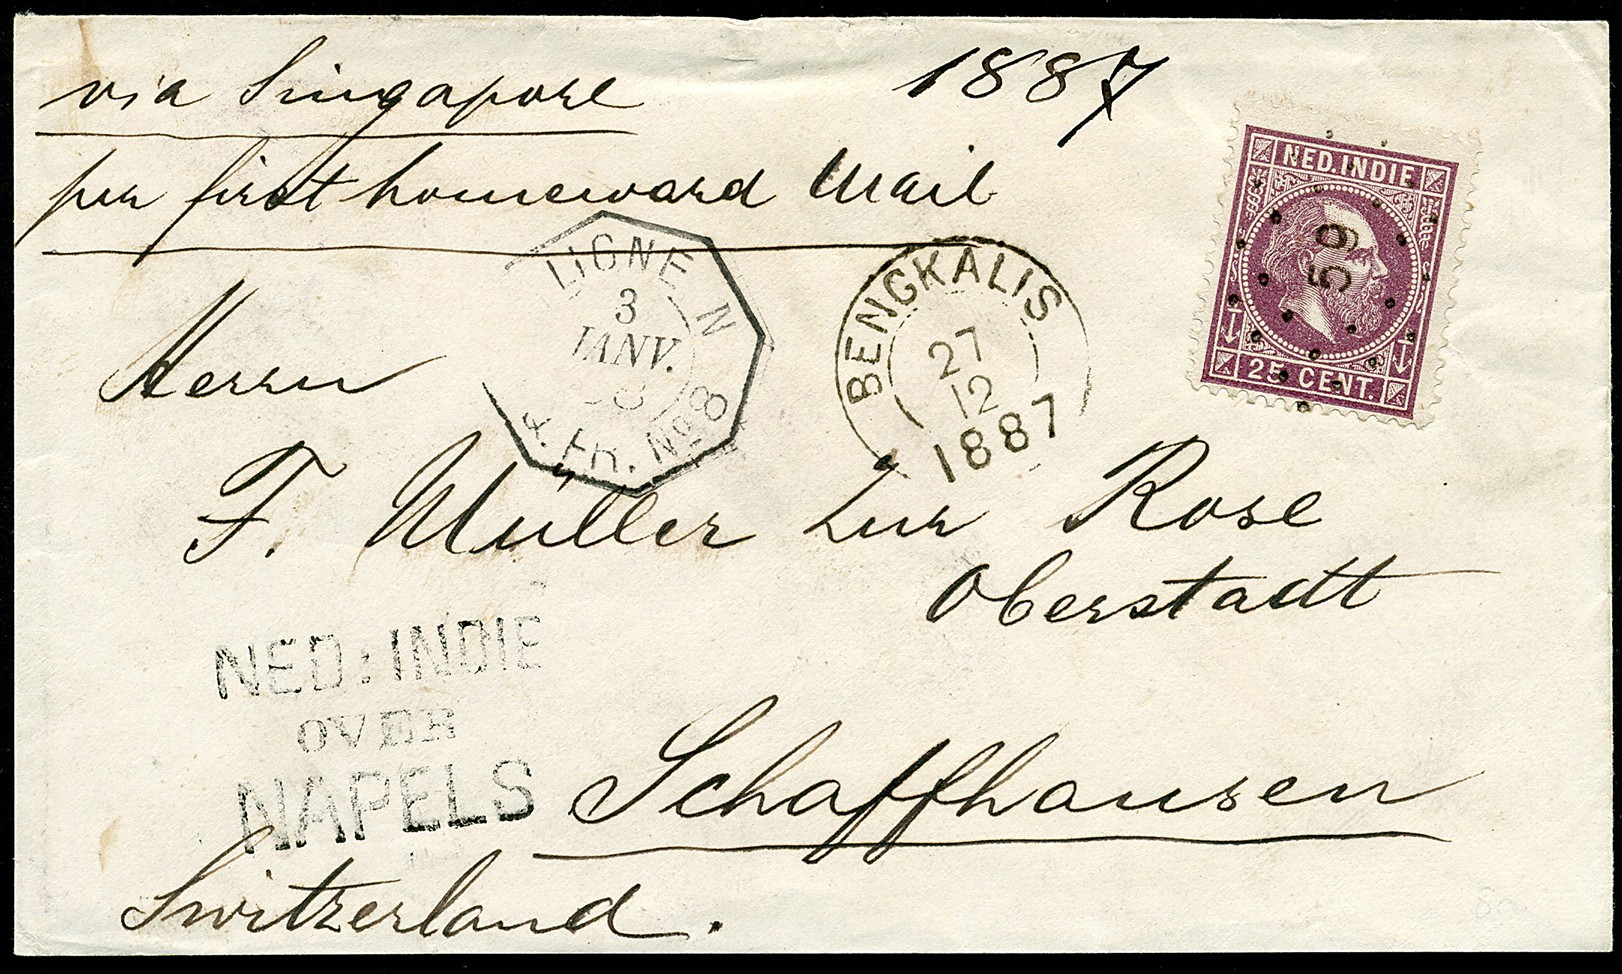 via Singapore
1887
per first homeward Mail
NED. INDIE
59
25 CENT.
LIGNE N
3
JANV.
88
FR. Nº 8
BENGKALIS
27
12
1887
Herrn
F. Müller zur Rose
Oberstadt
NED: INDIE
OVER
NAPELS
Schaffhausen
Switzerland.